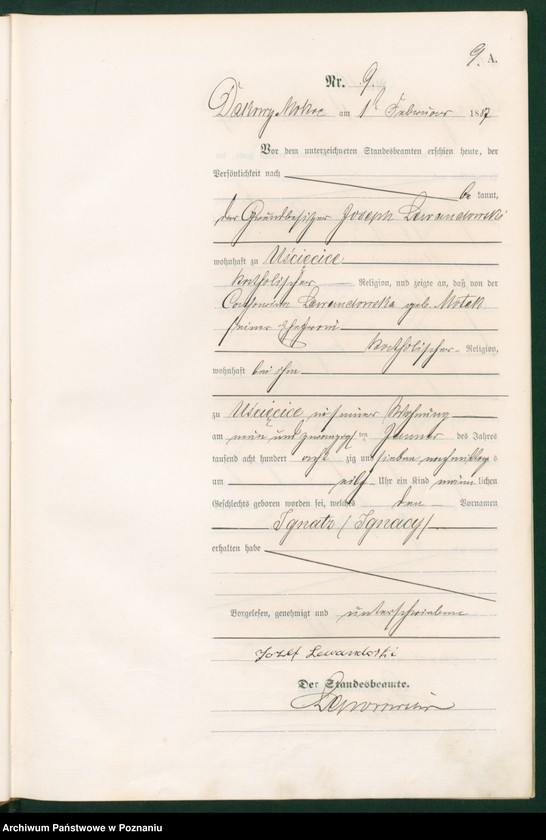 9. A.
Nr. 9.
am 1ten Februar 1887
Vor dem unterzeichneten Standesbeamten erschien heute, der
Persönlichkeit nach
be kannt,
der Grundbesitzer Joseph Lewandowski
wohnhaft zu Uścięcice
katholischer Religion, und zeigte an, daß von der
Lewandowska geb.
seiner Ehefrau
katholischer Religion,
wohnhaft bei ihm
zu Uścięcice in seiner Wohnung
am neun und zwanzigsten Januar des Jahres
tausend acht hundert acht zig und sieben nachmittags
um eilf Uhr ein Kind männlichen
Geschlechts geboren worden sei, welches den Vornamen
Ignatz (Ignacy)
erhalten habe
Vorgelesen, genehmigt und unterschrieben
Józef Lewandoski
Der Standesbeamte.
Archiwum Państwowe w Poznaniu